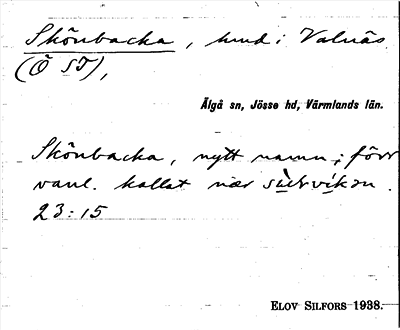 Skönbacka, hmd i Valnäs
(Ö ST),
Älgå sn, Jösse hd, Värmlands län.
Skönbacka, nytt namn; förr
vanl. kallat
23:15
ELOV SILFORS 1938.